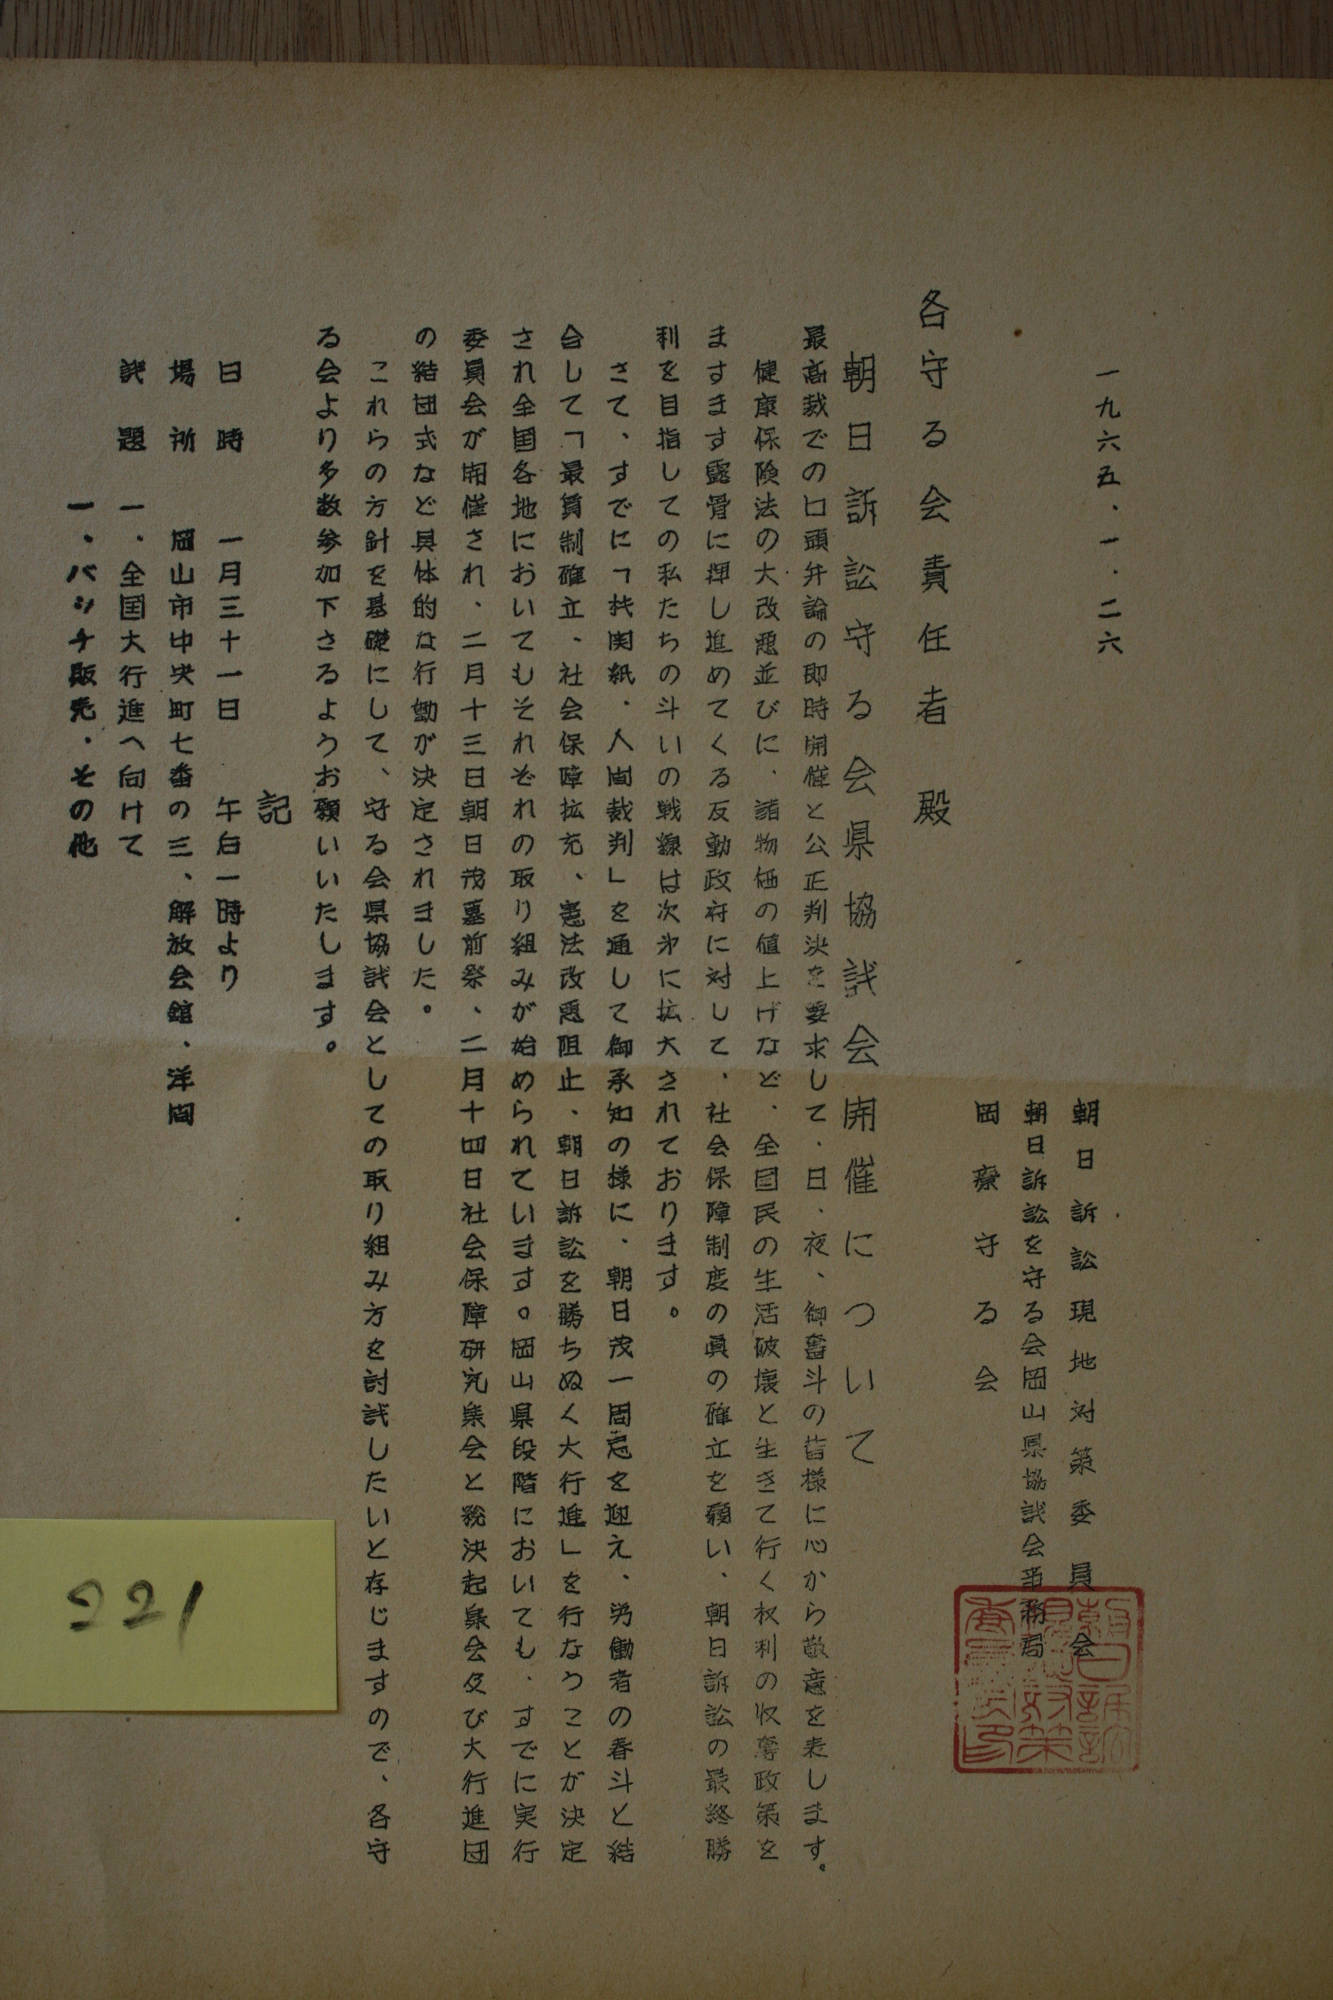 一九六五・一・二六
朝日訴訟現地対策委員会
朝日訴訟を守る会岡山県協議会事務局
岡療守る会
各守る会責任者殿
朝日訴訟守る会県協議会開催について
最高裁での口頭弁論の即時開催と公正判決を要求して・日、夜、御奮斗の皆様に心から敬意を表します。
健康保険法の大改悪並びに、諸物価の値上げなど、全国民の生活破壊と生きて行く权利の收奪政策を
ますます露骨に押し進めてくる反動政府に対して、社会保障制度の眞の確立を願い、朝日訴訟の最終勝
利を目指しての私たちの斗いの戦線は次第に拡大されております。
さて、すでに「機関紙・人間裁判」を通して御承知の様に、朝日茂一周忌を迎え、労働者の春斗と結
合して「最賃制確立、社会保障拡充、憲法改悪阻止、朝日訴訟を勝ちぬく大行進」を行なうことが決定
され全国各地においてもそれぞれの取り組みが始められています。岡山県段階においても、すでに実行
委員会が開催され、二月十三日朝日茂墓前祭、二月十四日社会保障研究集会と総決起集会及び大行進団
の結団式など具体的な行動が決定されました。
これらの方針を基礎にして、守る会県協議会としての取り組み方を討議したいと存じますので、各守
る会より多数参加下さるようお願いいたします。
記
日時　一月三十一日　午后一時より
場所　岡山市中央町七番の三、解放会館・洋間
議題　一、全国大行進へ向けて
一、バッチ販売・その他
朝日訴訟現地対策委員会印
221